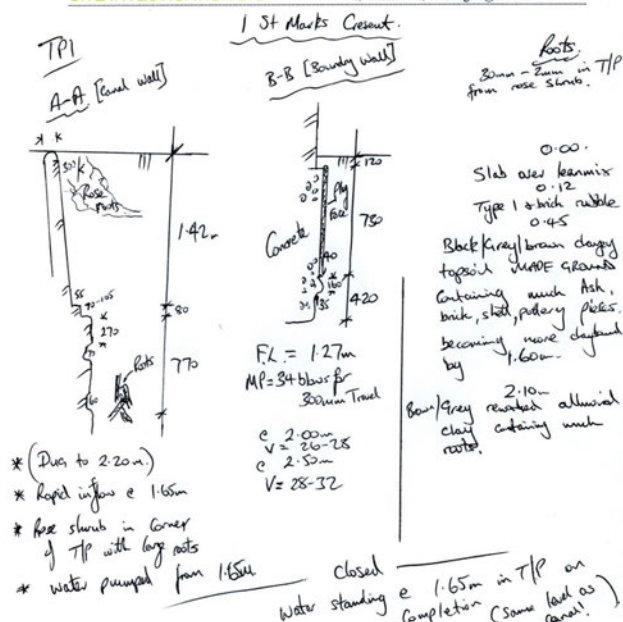 1 St Marks Cresent.
TP1
A-A [Canal Wall]
300
Rose
Roots
1.42m
55
70-105
80
270
770
Roots
60
* (Dug to 2.20m.)
* Rapid inflow @ 1.65m
* Rose shrub in Corner
of T/P with large roots
* Water pumped from 1.65m
B-B [Boundry Wall]
120
Ply
Face
Concrete
730
40
160
35
420
F.L. = 1.27m
MP = 34 blows for
300mm Travel
@ 2.00m
V = 26-28
@ 2.50m
V = 28-32
Roots.
30mm - 2mm in T/P
from rose shrub.
0.00.
Slab over leanmix
0.12
Type 1 & brick rubble
0.45
Black/Grey/brown clayey
topsoil MADE GROUND
Containing much Ash,
brick, shell, pottery pieces.
becoming more clay
by 1.60m.
2.10m
Brown/Grey reworked alluvial
clay containing much
roots.
closed
Water standing @ 1.65m in T/P on
Completion (Same level as
canal!)